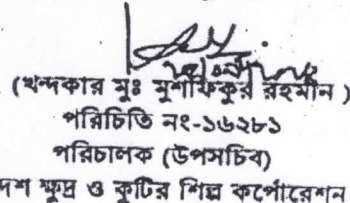 (খন্দকার মুঃ মুশফিকুর রহমান )
পরিচিতি নং-১৬২৮১
পরিচালক (উপসচিব)
দেশ ক্ষুদ্র ও কুটির শিল্প কর্পোরেশন